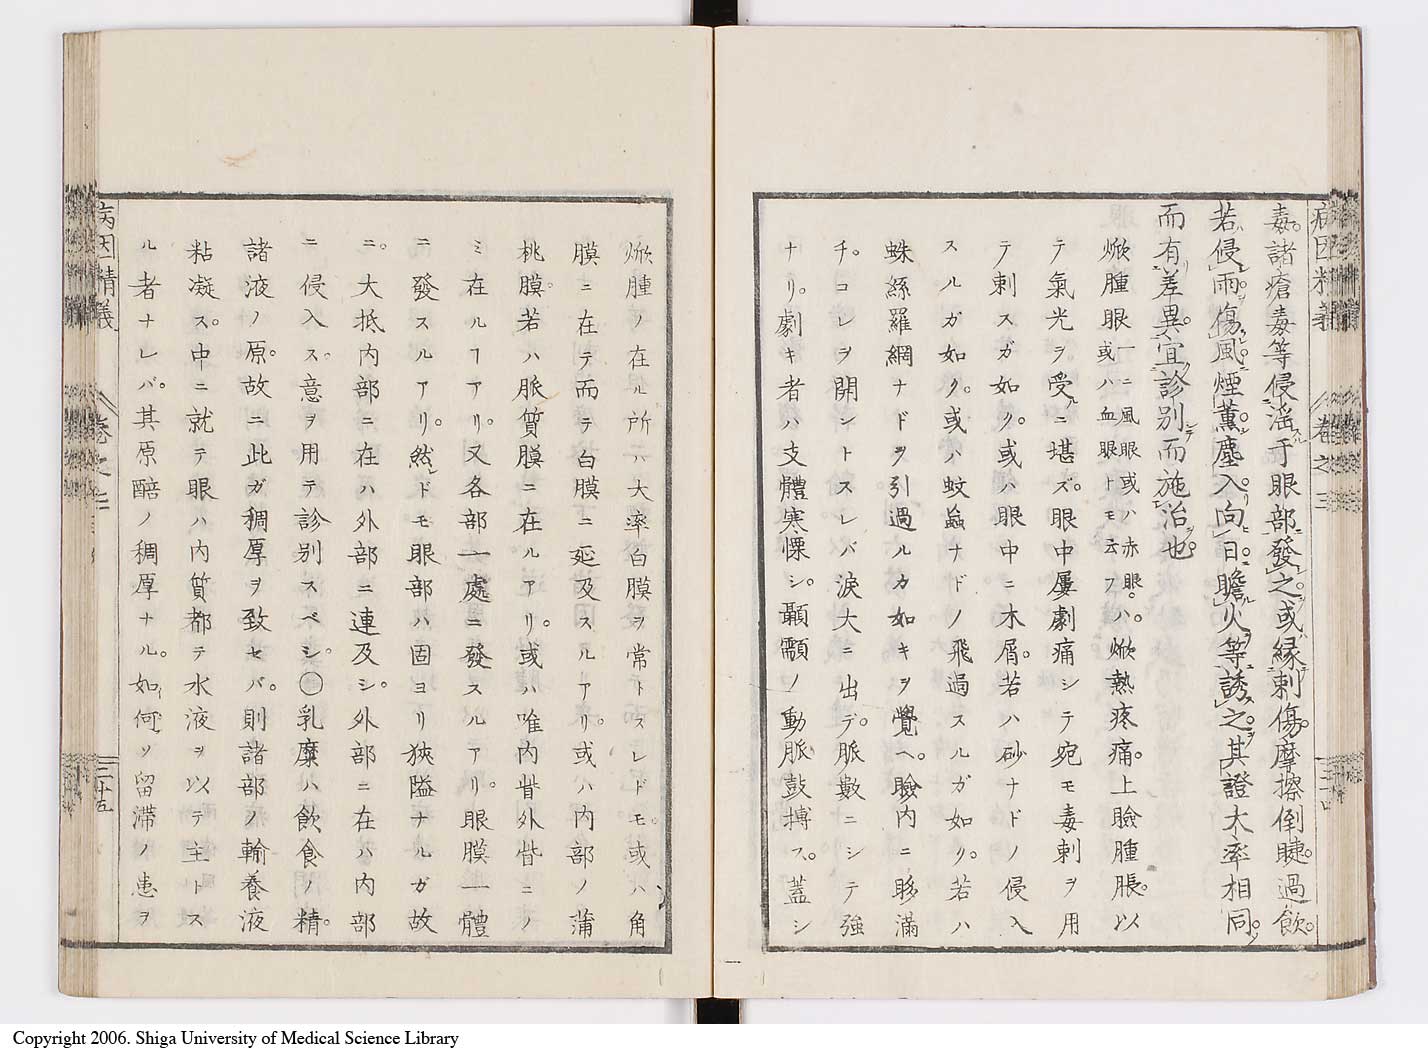 病因精義 卷之三
毒。諸瘡毒等侵淫于眼部發之。或縁刺傷。摩擦倒睫。過飲。
若侵雨傷風。煙薰塵入。向日瞻火等誘之。其證大率相同。
而有差異。宜診別而施治也。
焮腫眼一ニ風眼或ハ赤眼。
或ハ血眼トモ云フハ。焮熱疼痛。上瞼腫脹。以
テ氣光ヲ受ルニ堪ズ。眼中屢劇痛シテ宛モ毒刺ヲ用
テ刺スガ如ク。或ハ眼中ニ木屑。若ハ砂ナドノ侵入
スルガ如ク。或ハ蚊蝱ナドノ飛過スルガ如リ。若ハ
蛛絲羅網ナドヲ引過ルカ如キヲ覺ヘ。瞼内ニ眵滿
チ。コレヲ開ントスレバ淚大ニ出デ。脈數ニシテ強
ナリ。劇キ者ハ支體寒慄シ。顳顬ノ動脈鼓搏フ。蓋シ
焮腫ノ在ル所ハ大率白膜ヲ常トスレドモ。或ハ角
膜ニ在テ而テ白膜ニ延及スルアリ。或ハ内部ノ蒲
桃膜。若ハ脈質膜ニ在ルアリ。或ハ唯内眥外眥ニノ
ミ在ルヿアリ。又各部一處ニ發スルアリ。眼膜一體
ニ發スルアリ。然レドモ眼部ハ固ヨリ狹隘ナルガ故
ニ。大抵内部ニ在ハ外部ニ連及シ。外部ニ在ハ内部
ニ侵入ス。意ヲ用テ診別スベシ。〇乳糜ハ飲食ノ精。
諸液ノ原。故ニ此ガ稠厚ヲ致セバ。則諸部ノ輸養液
粘凝ス。中ニ就テ眼ハ内質都テ水液ヲ以テ主トス
ル者ナレバ。其原醅ノ稠厚ナル。如何ソ留滞ノ患ヲ
病因精義 卷之三 三十五
Copyright 2006. Shiga University of Medical Science Library